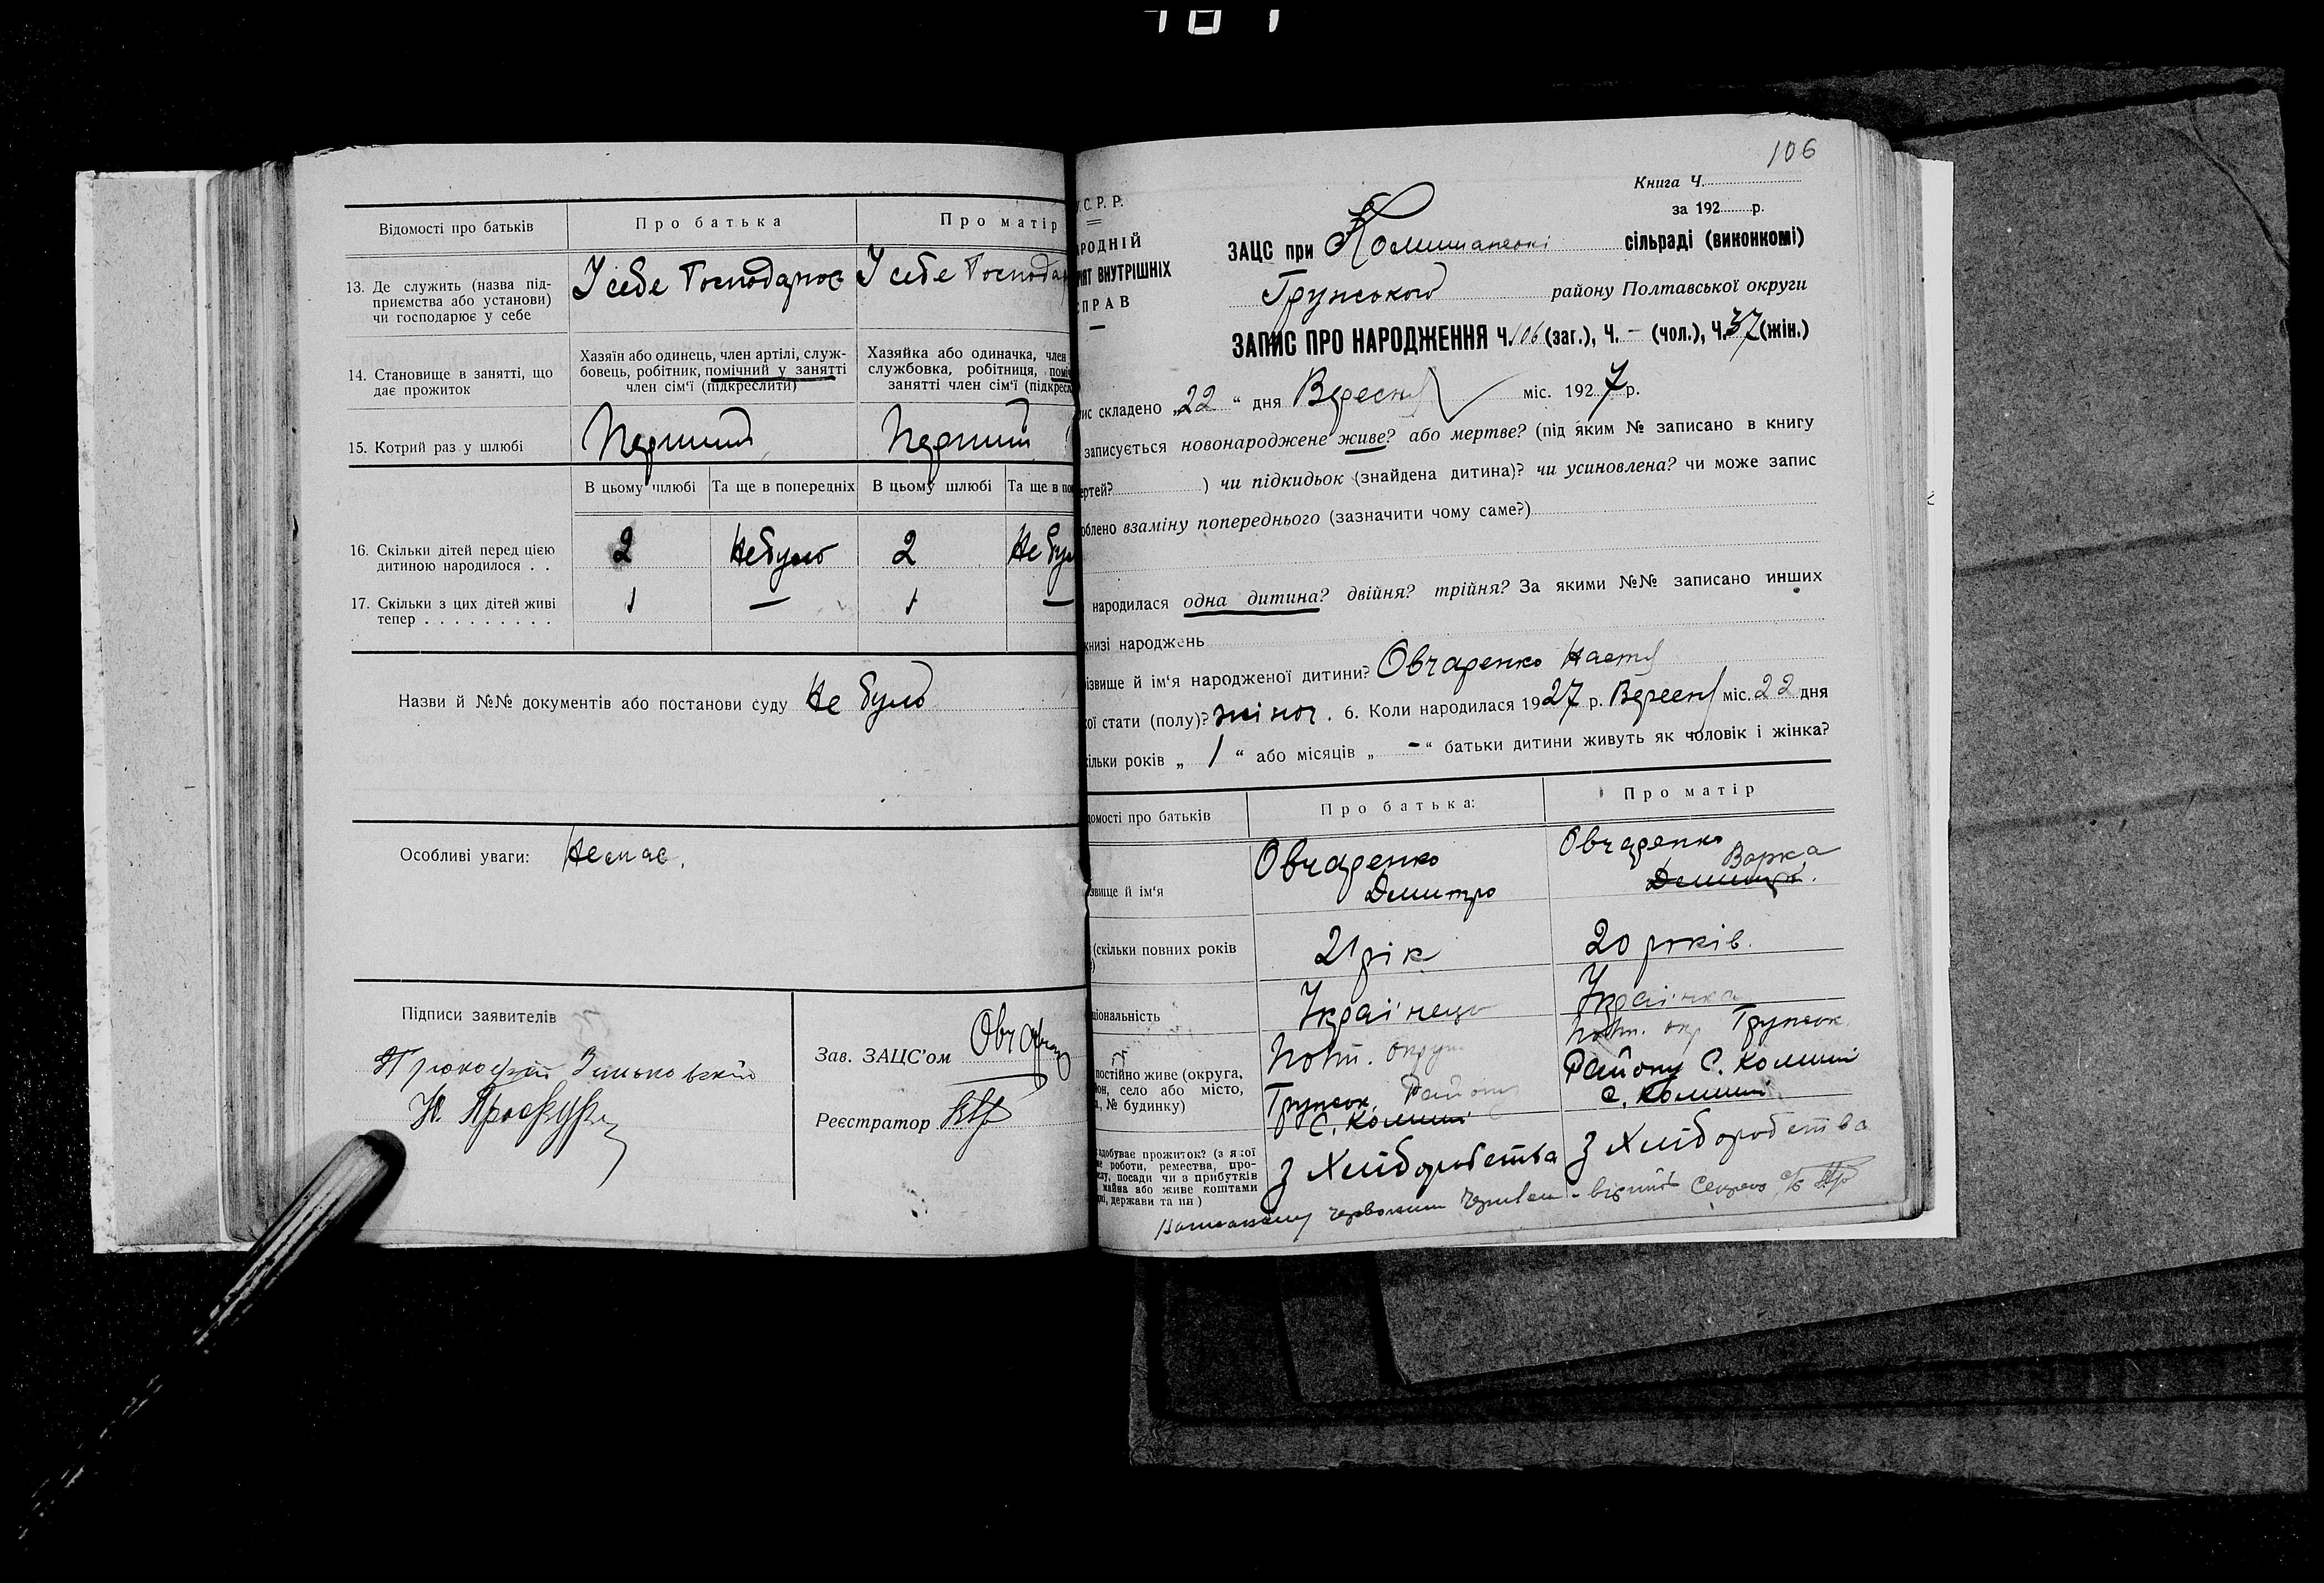 Відомості про батьків
Про батька
Про матір
13. Де служить (назва під-
приємства або установи)
чи господарює у себе
У себе Господарює
У себе Господар
14. Становище в занятті, що
дає прожиток
Хазяїн або одинець, член артілі, служ-
бовець, робітник, помічний у занятті
член сім'ї (підкреслити)
Хазяйка або одиначка, член
службовка, робітниця, поміч
занятті член сім'ї (підкресл
15. Котрий раз у шлюбі
Перший
Перший
В цьому шлюбі
Та ще в попередніх
В цьому шлюбі
Та ще в поп
16. Скільки дітей перед цією
дитиною народилося . .
2
Не було
2
Не бул
17. Скільки з цих дітей живі
тепер . . . . . . . . .
1
—
1
—
Назви й №№ документів або постанови суду Не було
Особливі уваги: Немає.
Підписи заявителів
Н. Проскурн
Зав. ЗАЦС'ом
Реєстратор
106
Книга Ч.
за 192 р.
. С. Р. Р.
РОДНІЙ
ІЯТ ВНУТРІШНІХ
ПРАВ
ЗАЦС при Комишанські сільраді (виконкомі)
Грунського району Полтавської округи
ЗАПИС ПРО НАРОДЖЕННЯ Ч. 106 (заг.), Ч. – (чол.), Ч. 37 (жін.)
ис складено „22“ дня Вересня міс. 1927 р.
записується новонароджене живе? або мертве? (під яким № записано в книгу
ертей? ) чи підкидьок (знайдена дитина)? чи усиновлена? чи може запис
облено взаміну попереднього (зазначити чому саме?)
народилася одна дитина? двійня? трійня? За якими №№ записано инших
книзі народжень
ізвище й ім'я народженої дитини? Овчаренко Настя
ої стати (полу)? жіноч. 6. Коли народилася 1927 р. Вересня міс. 22 дня
кільки років „ 1 “ або місяців „ - “ батьки дитини живуть як чоловік і жінка?
домості про батьків
Про батька:
Про матір
звище й ім'я
Овчаренко
Дмитро
Овчаренко
Варка
Дмитро.
(скільки повних років
21 рік
20 років.
ціональність
Українець
Українка
постійно живе (округа,
он, село або місто,
, № будинку)
Полт. округи
Грунськ. Району
С. Комиші
Полт. окр Грунськ.
Району С. Комиші
С. Комиші
здобуває прожиток? (з якої
ме роботи, ремества, про-
слу, посади чи з прибутків
майна або живе коштами
ни, держави та ин)
З Хліборобства
З Хліборобства